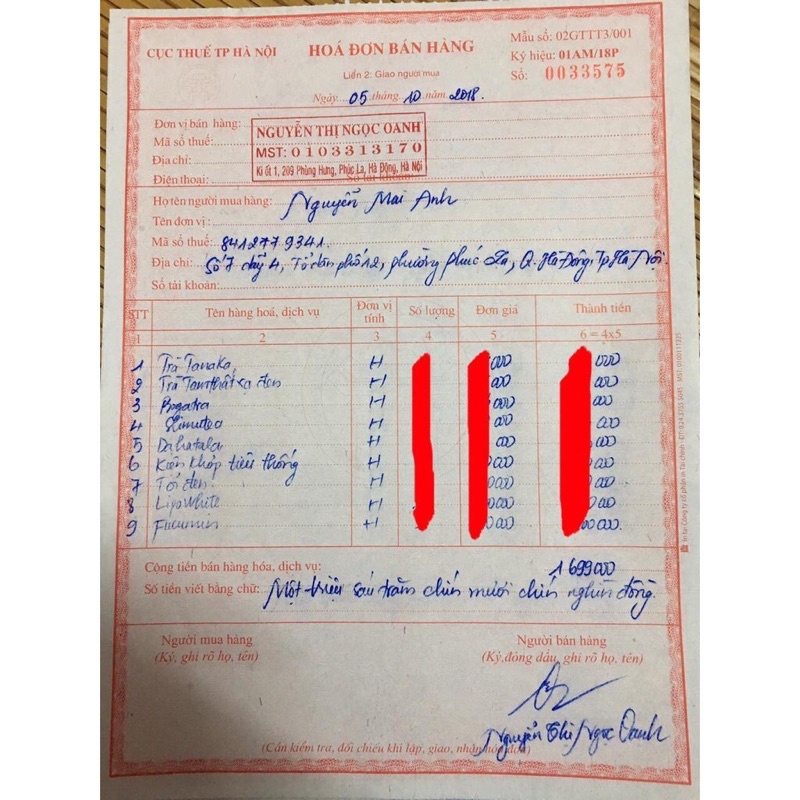 CỤC THUẾ TP HÀ NỘI
HOÁ ĐƠN BÁN HÀNG
Liên 2: Giao người mua
Ngày 05 tháng 10 năm 2018.
Mẫu số: 02GTTT3/001
Ký hiệu: 01AM/18P
Số: 0033575
Đơn vị bán hàng:
Mã số thuế:
Địa chỉ:
Điện thoại: Số tài khoản:
NGUYỄN THỊ NGỌC OANH
MST: 0103313170
Ki ốt 1, 209 Phùng Hưng, Phúc La, Hà Đông, Hà Nội
Họ tên người mua hàng: Nguyễn Mai Anh
Tên đơn vị:
Mã số thuế: 8412779341.
Địa chỉ: Số 7 dãy 4, Tổ dân phố 12, phường phúc La, Q. Hà Đông, Tp Hà Nội
Số tài khoản:
STT Tên hàng hoá, dịch vụ Đơn vị tính Số lượng Đơn giá Thành tiền
1 2 3 4 5 6 = 4x5
1 Trà Tanaka H 000 000
2 Trà Tam thất xạ đen H 000 000
3 H 000 000
4 Slimutea H 000 000
5 H 000 000
6 Kiện khớp tiêu thống H 000 000
7 Tỏi đen H 0000 000
8 Lipowhite H 0000 000
9 H 0000 00000.
Cộng tiền bán hàng hóa, dịch vụ: 1 699000
Số tiền viết bằng chữ: Một triệu sáu trăm chín mươi chín nghìn đồng.
Người mua hàng
(Ký, ghi rõ họ, tên)
Người bán hàng
(Ký, đóng dấu, ghi rõ họ, tên)
Nguyễn Thị Ngọc Oanh
(Cần kiểm tra, đối chiếu khi lập, giao, nhận hóa đơn)